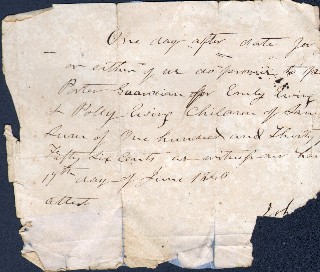 One day after date for
or either of us do promise to pa
Porter Guardian for Emily Ewing
& Polly Ewing Children of
Sum of One hundred and Thirty
Fifty Six Cents as witness our han
17th day of June 18
attest